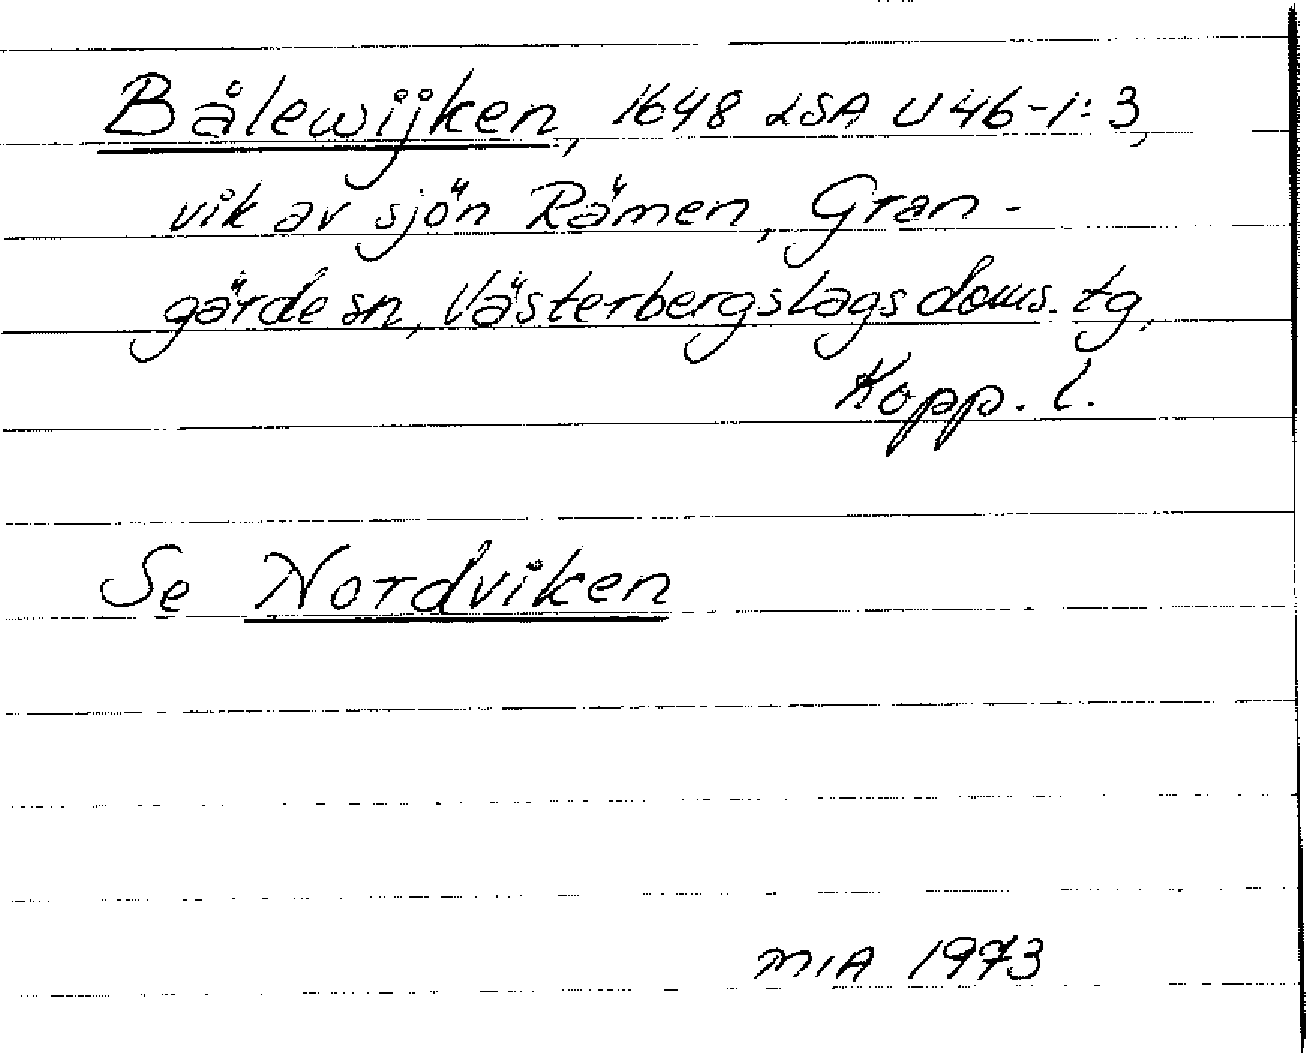 Bålewijken, 1648 LSA U 46-1:3,
vik av sjön Rämen, Gran-
gärde sn, Västerbergslags doms. tg,
Kopp. l.
Se Nordviken
MIA 1973